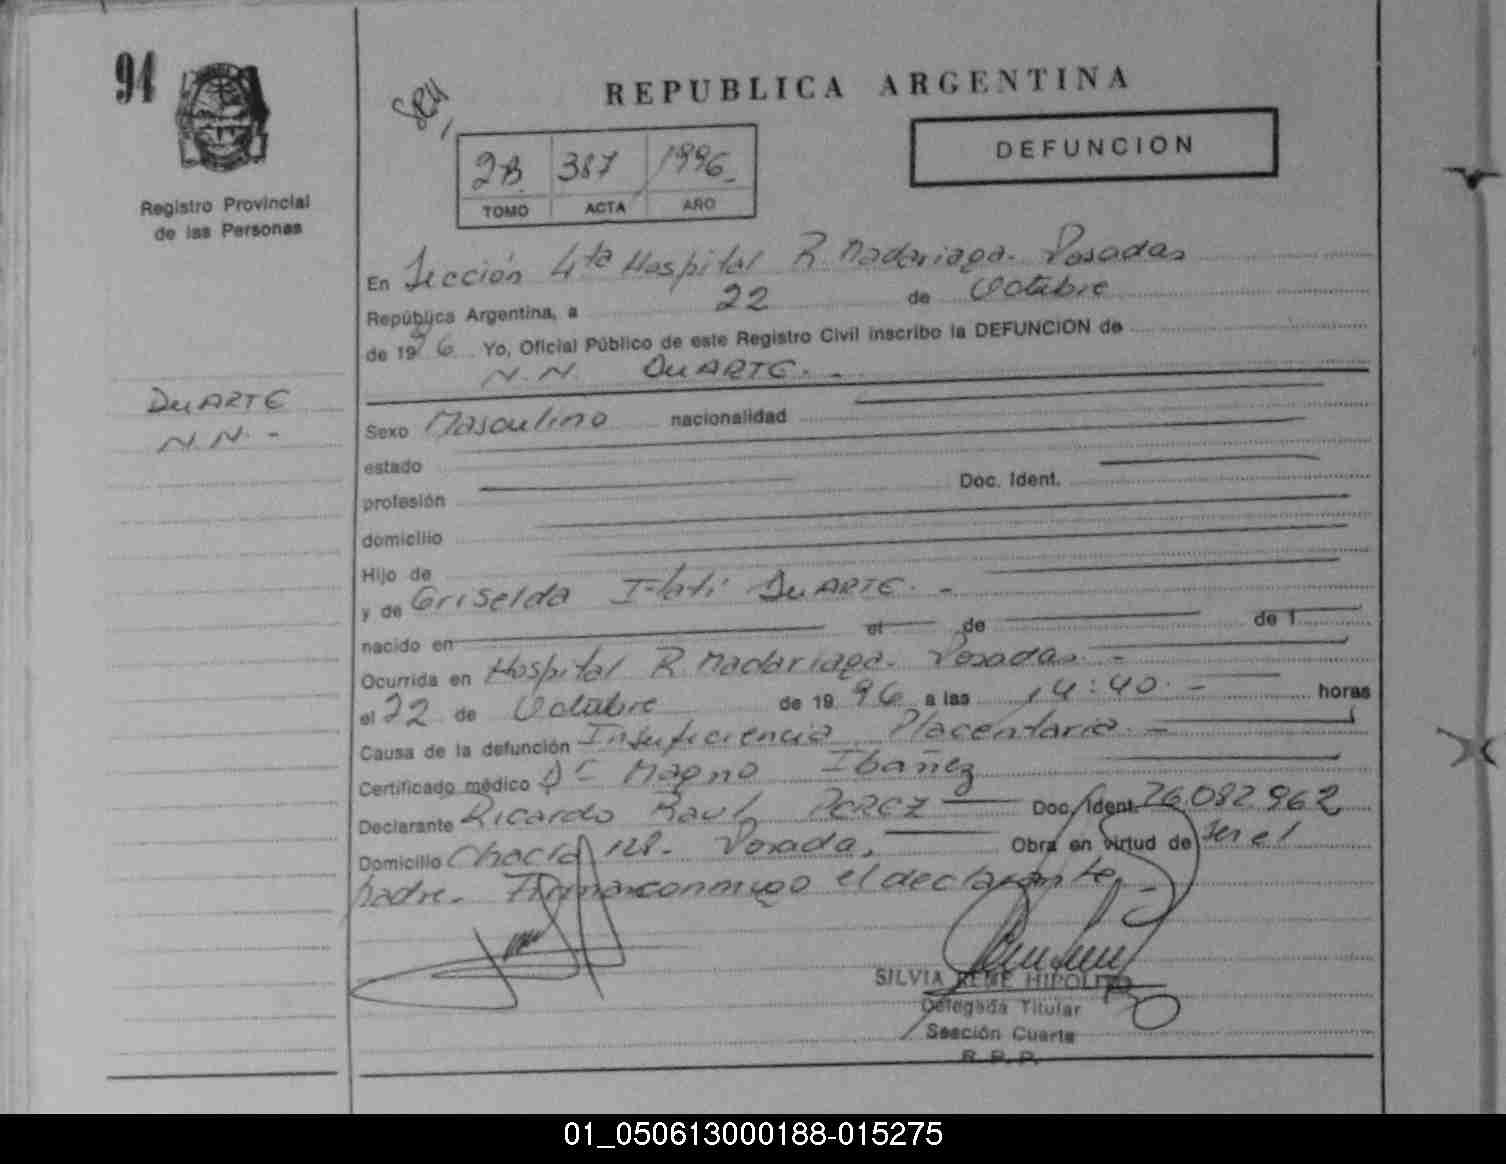 94
REPUBLICA ARGENTINA
DEFUNCION
2B. 387 1996.
TOMO ACTA AÑO
Registro Provincial
de las Personas
En Sección 4ta Hospital R. Madariaga. Posadas
República Argentina, a 22 de Octubre
de 1996 Yo, Oficial Público de este Registro Civil inscribo la DEFUNCION de
N.N. DUARTE. -
DUARTE
N.N. -
Sexo Masculino nacionalidad
estado
profesión Doc. Ident.
domicilio
Hijo de
y de Griselda Itati DUARTE. -
nacido en el de de 1
Ocurrida en Hospital R. Madariaga. Posadas. -
el 22 de Octubre de 19 96 a las 14:40. - horas
Causa de la defunción Insuficiencia Placentaria. -
Certificado médico Dr Magno Ibañez
Declarante Ricardo Raul PEREZ Doc. Ident. 26.082.962
Domicilio 128. Posadas, Obra en virtud de ser el
padre. Firma conmigo el declarante, -
SILVIA RENE HIPOLITO
Delegada Titular
Sección Cuarta
R. P. P.
01_050613000188-015275